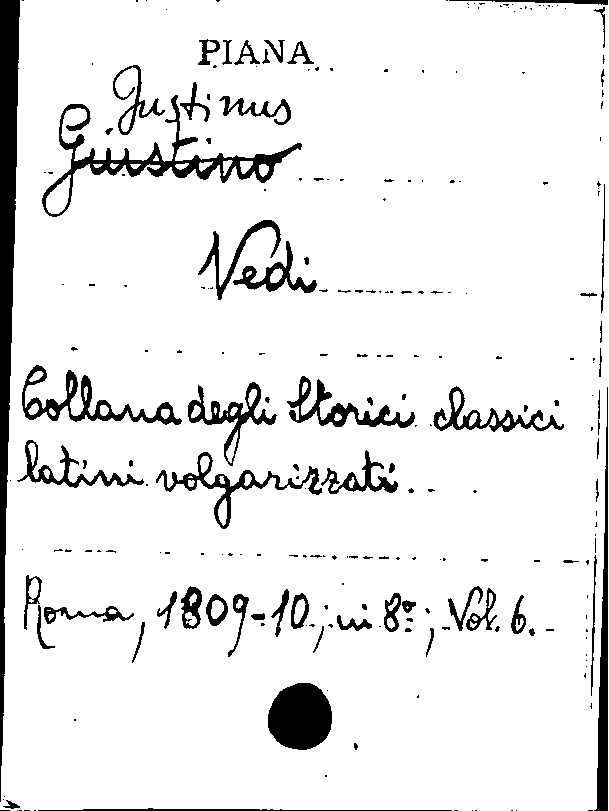 PIANA
Justinus
Giustino
Vedi
Collana degli Storici classici
latini volgarizzati.
Roma, 1809-10; in 8º; Vol. 6.